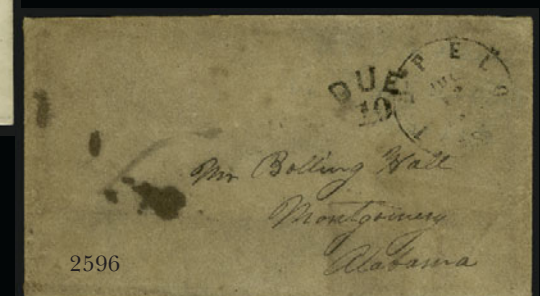 DUE
10
Mr Bolling Hall
Montgomery
Alabama
2596